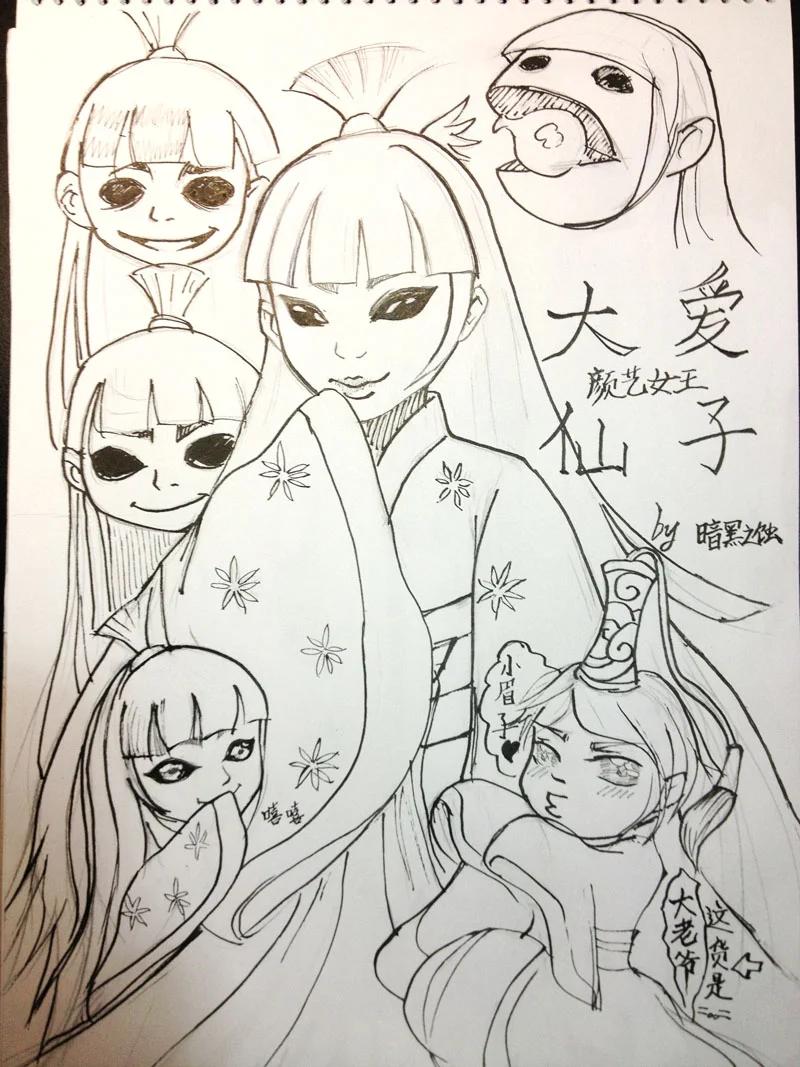 大爱
颜艺女王
仙子
by 暗黑之蚀
小眉子♥
嘻嘻
这货是
大老爷